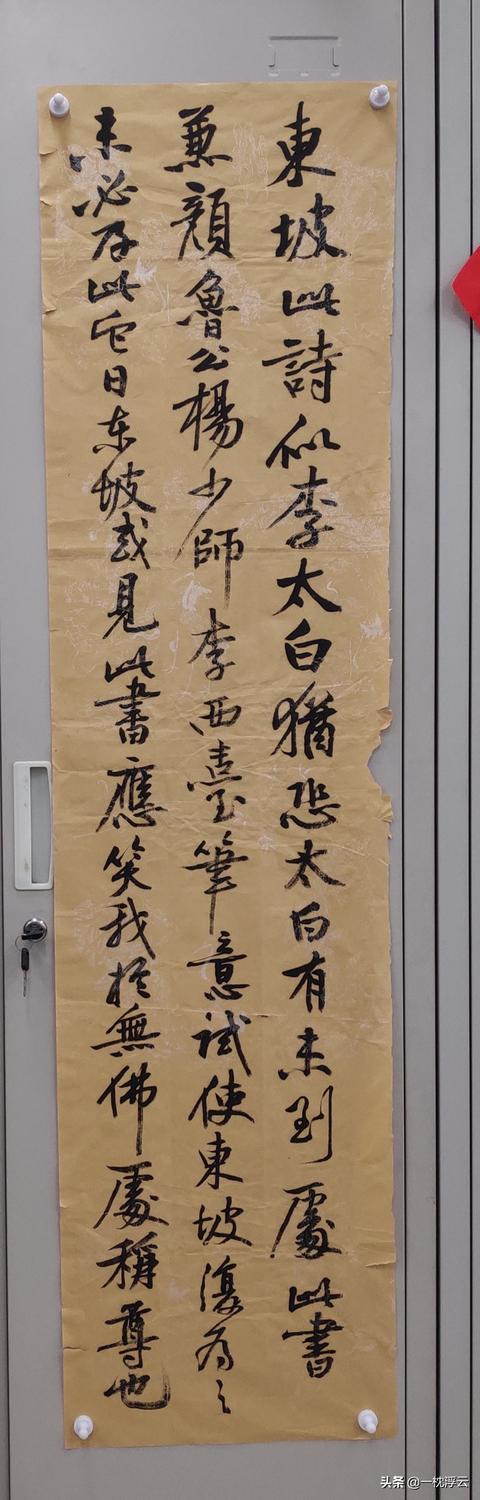 東坡此詩似李太白猶恐太白有未到處此書
兼顏魯公楊少師李西臺筆意試使東坡復為之
未必及此它日東坡或見此書應笑我於無佛處稱尊也
头条 @一枕浮云